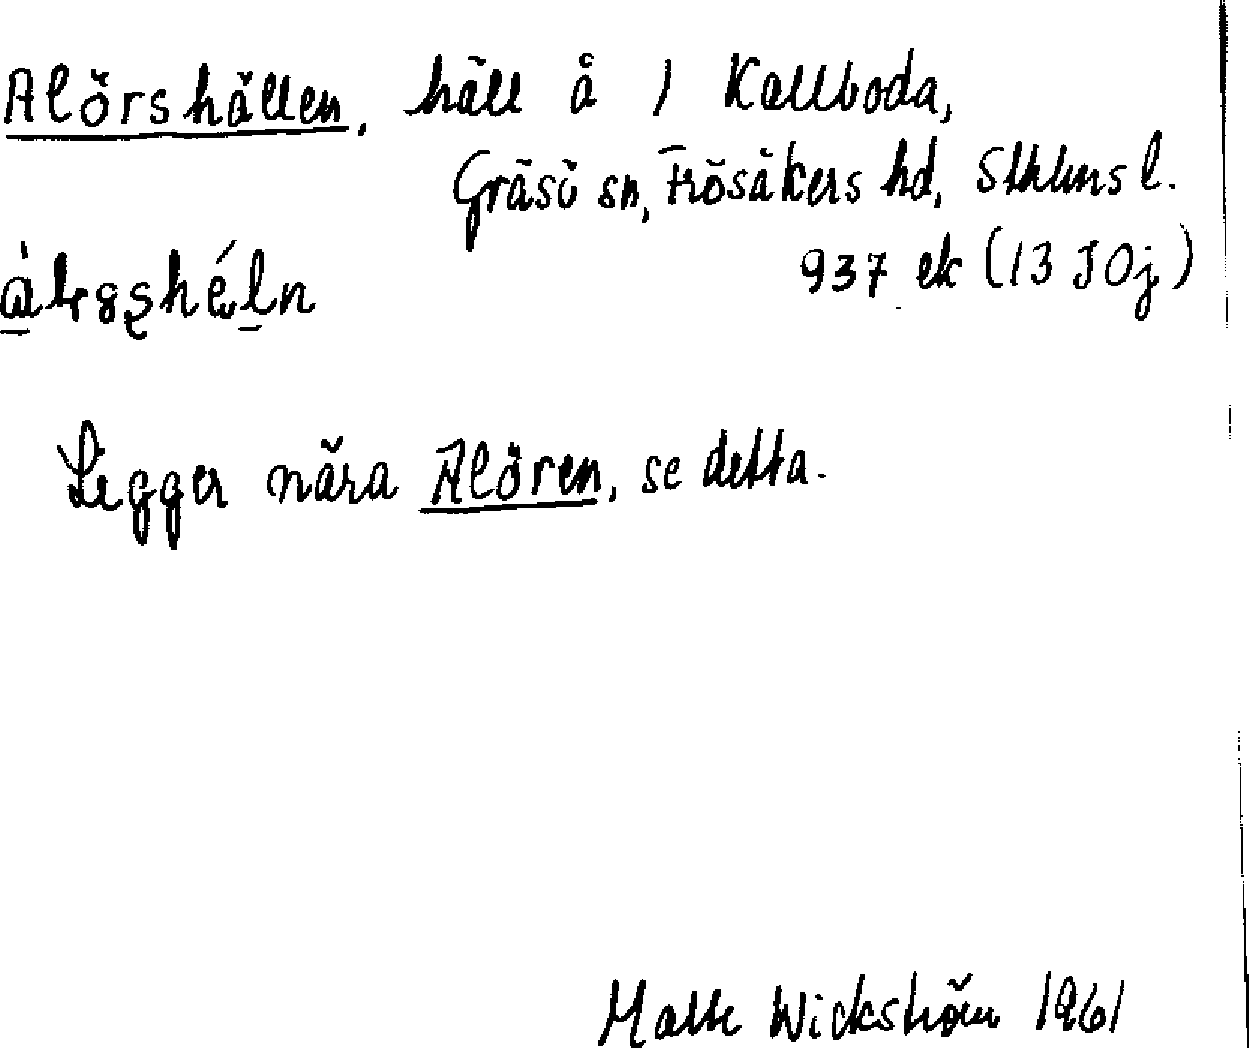 Alörshällen, häll å 1 Kallboda,
Gräsö sn, Frösåkers hd, Sthlms l.
937 ek (13 I 0j)
Ligger nära Alören, se detta.
Matts Wickström 1961